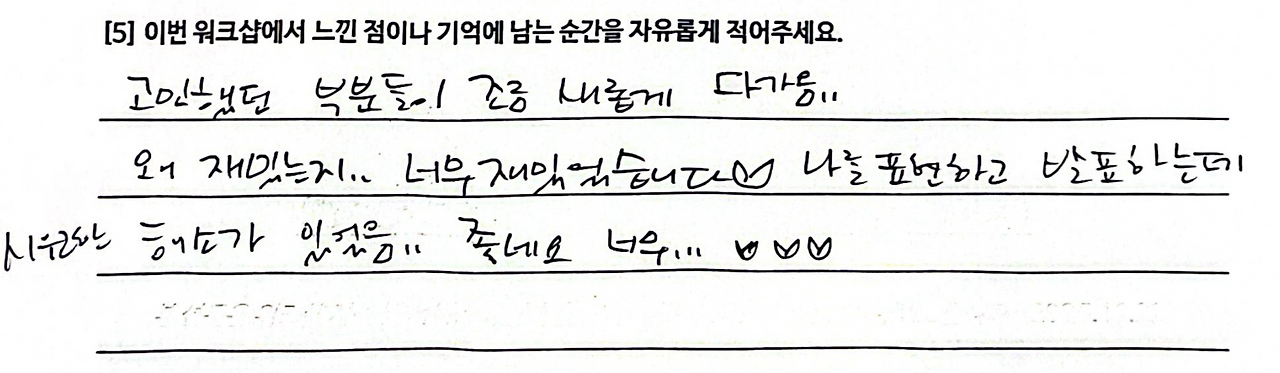 [5] 이번 워크샵에서 느낀 점이나 기억에 남는 순간을 자유롭게 적어주세요.
고민했던 부분들이 조금 새롭게 다가옴..
왜 재밌는지.. 너무 재밌었습니다♡ 나를 표현하고 발표하는데
시원한 해소가 있었음.. 좋네요 너무... ♥♡♡